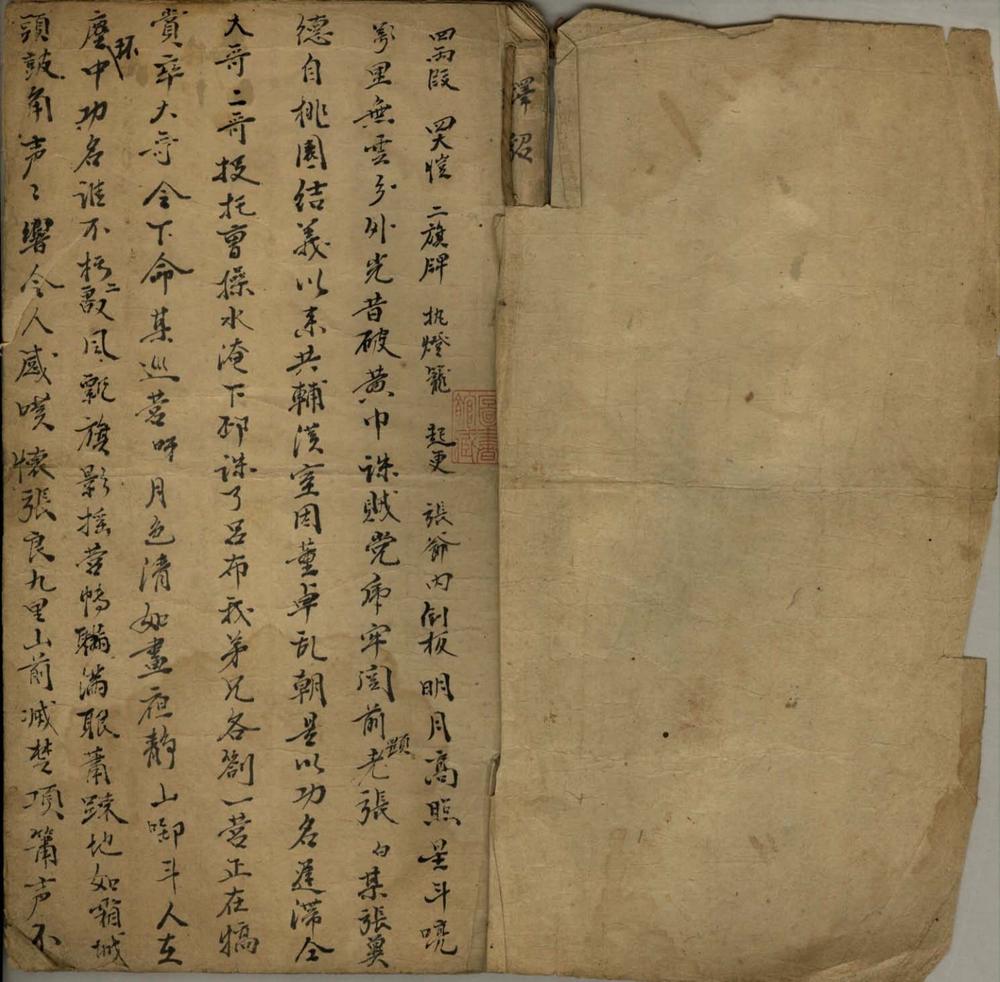 澤紹
四兩段 四大愷 二旗牌 执燈籠 起更 張爺內倒板 明月高照星斗嘵
萬里無雲分外光昔破黄巾誅賊党虎牢関前顕老張 白某張冀
德自桃園結義以来共輔漢室因董卓乱朝是以功名遲滯仝
大哥二哥投托曹操水淹下邳誅了呂布我弟兄各劄一营正在犒
賞奉大哥仝下命某巡营呀月色清如畫夜静山啣斗人在
塵环中功名誰不極二敲風飄旗影摇营帳瞞满眼萧踈地如霜城
頭鼓角声〻響令人感嘆懷張良九里山前减楚項箫声不